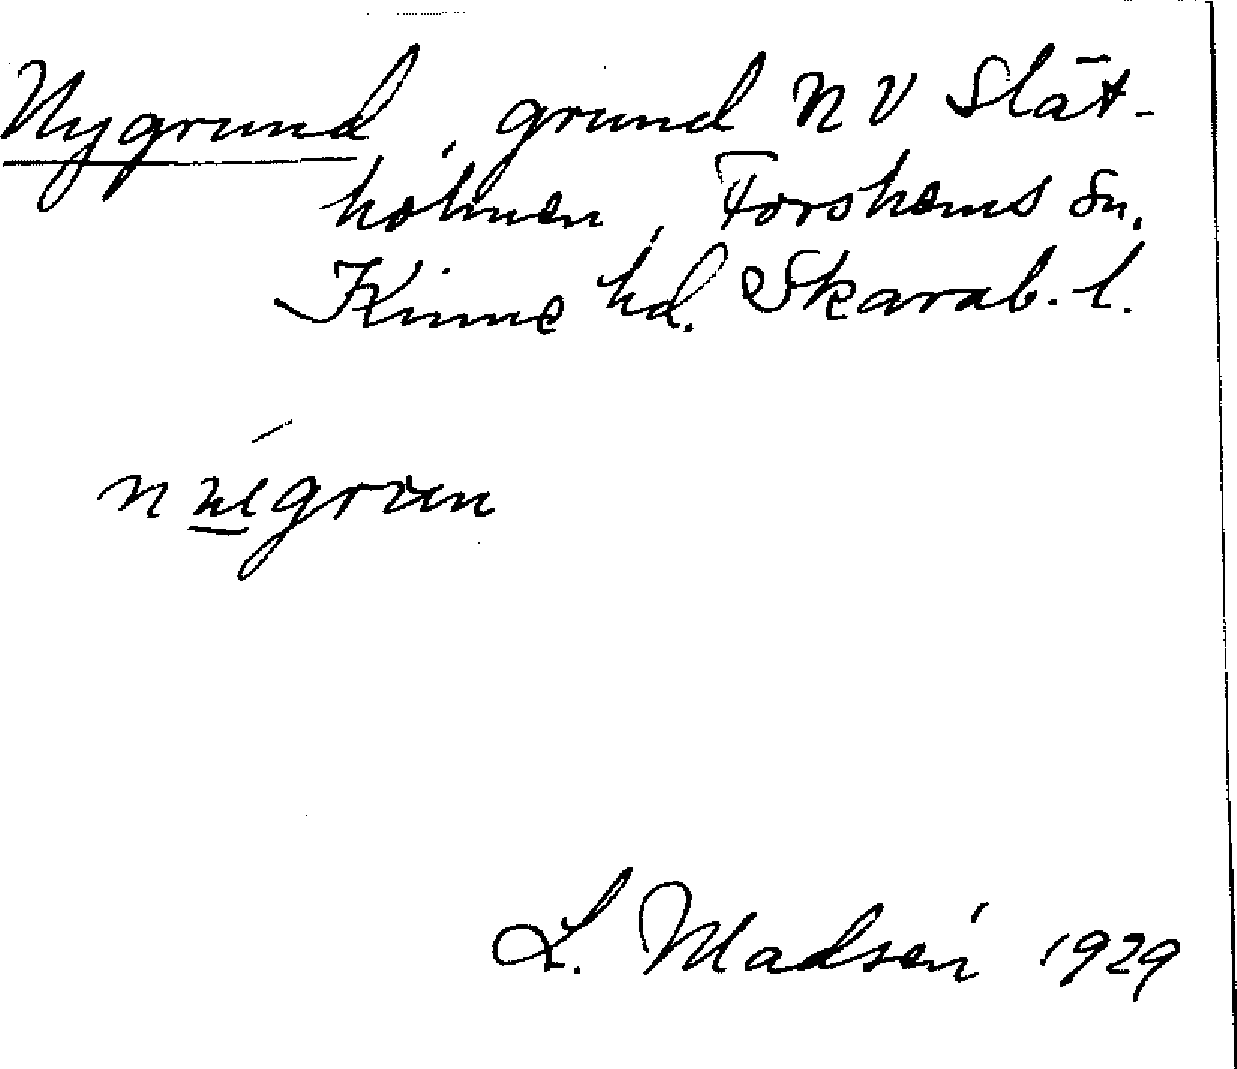 Nygrund, grund NV Slät-
holmen, Forshems sn.
Kinne hd. Skarab. l.
L. Madsén 1929